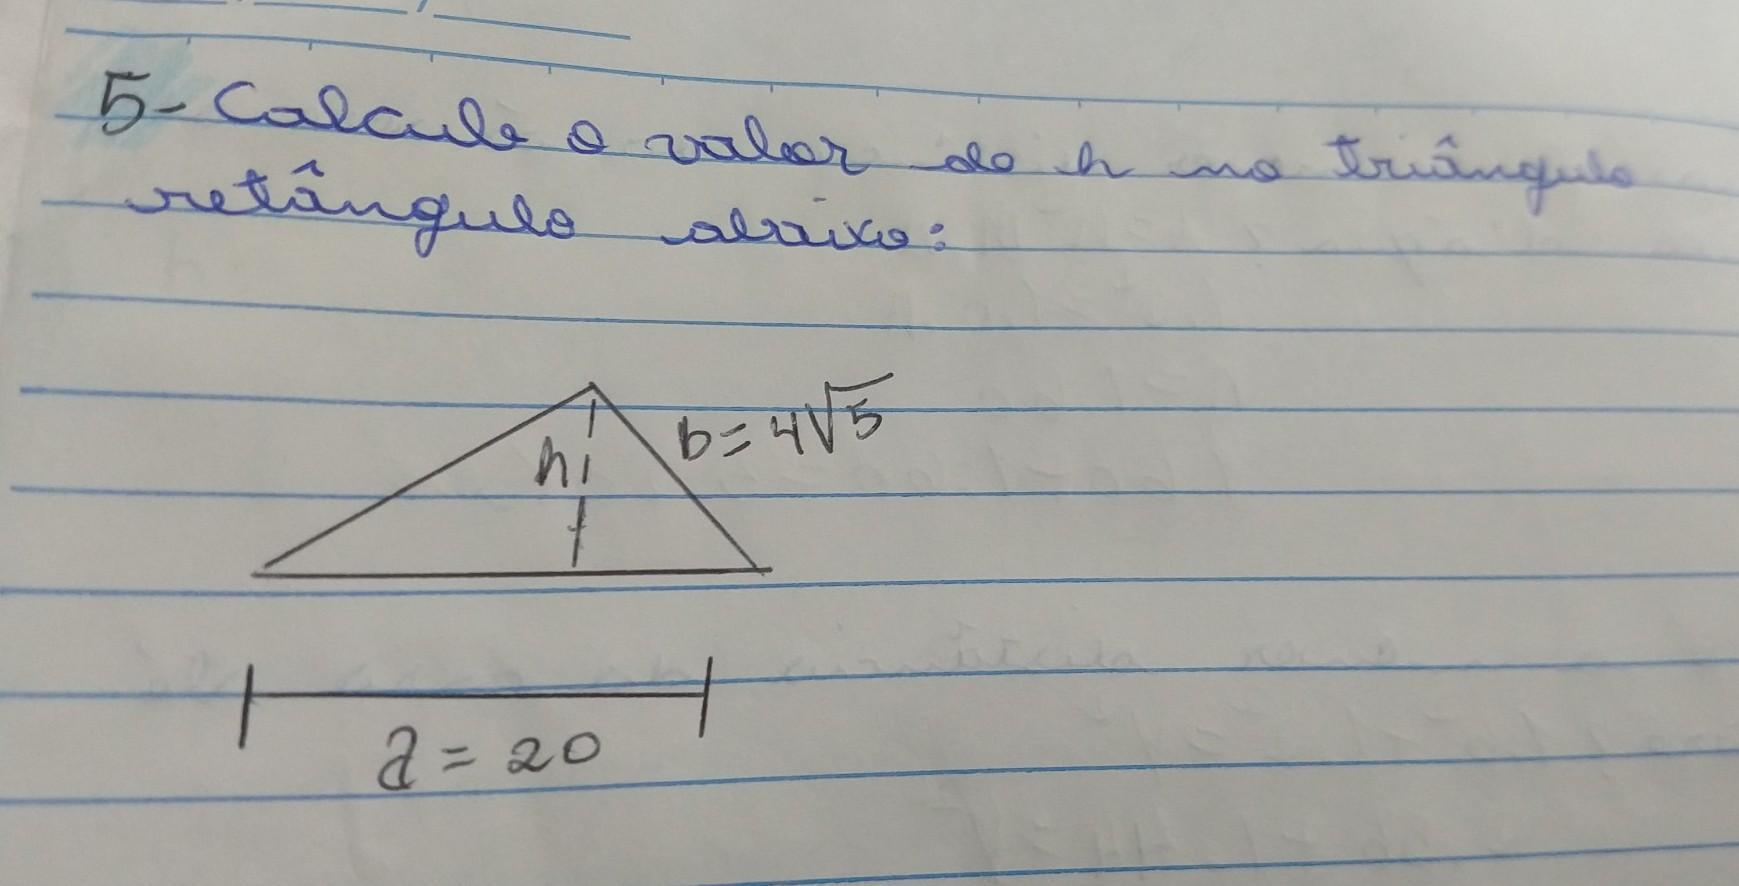 5- Calcule o valor de h no triângulo
retângulo abaixo:
b = 4√5
h
a = 20